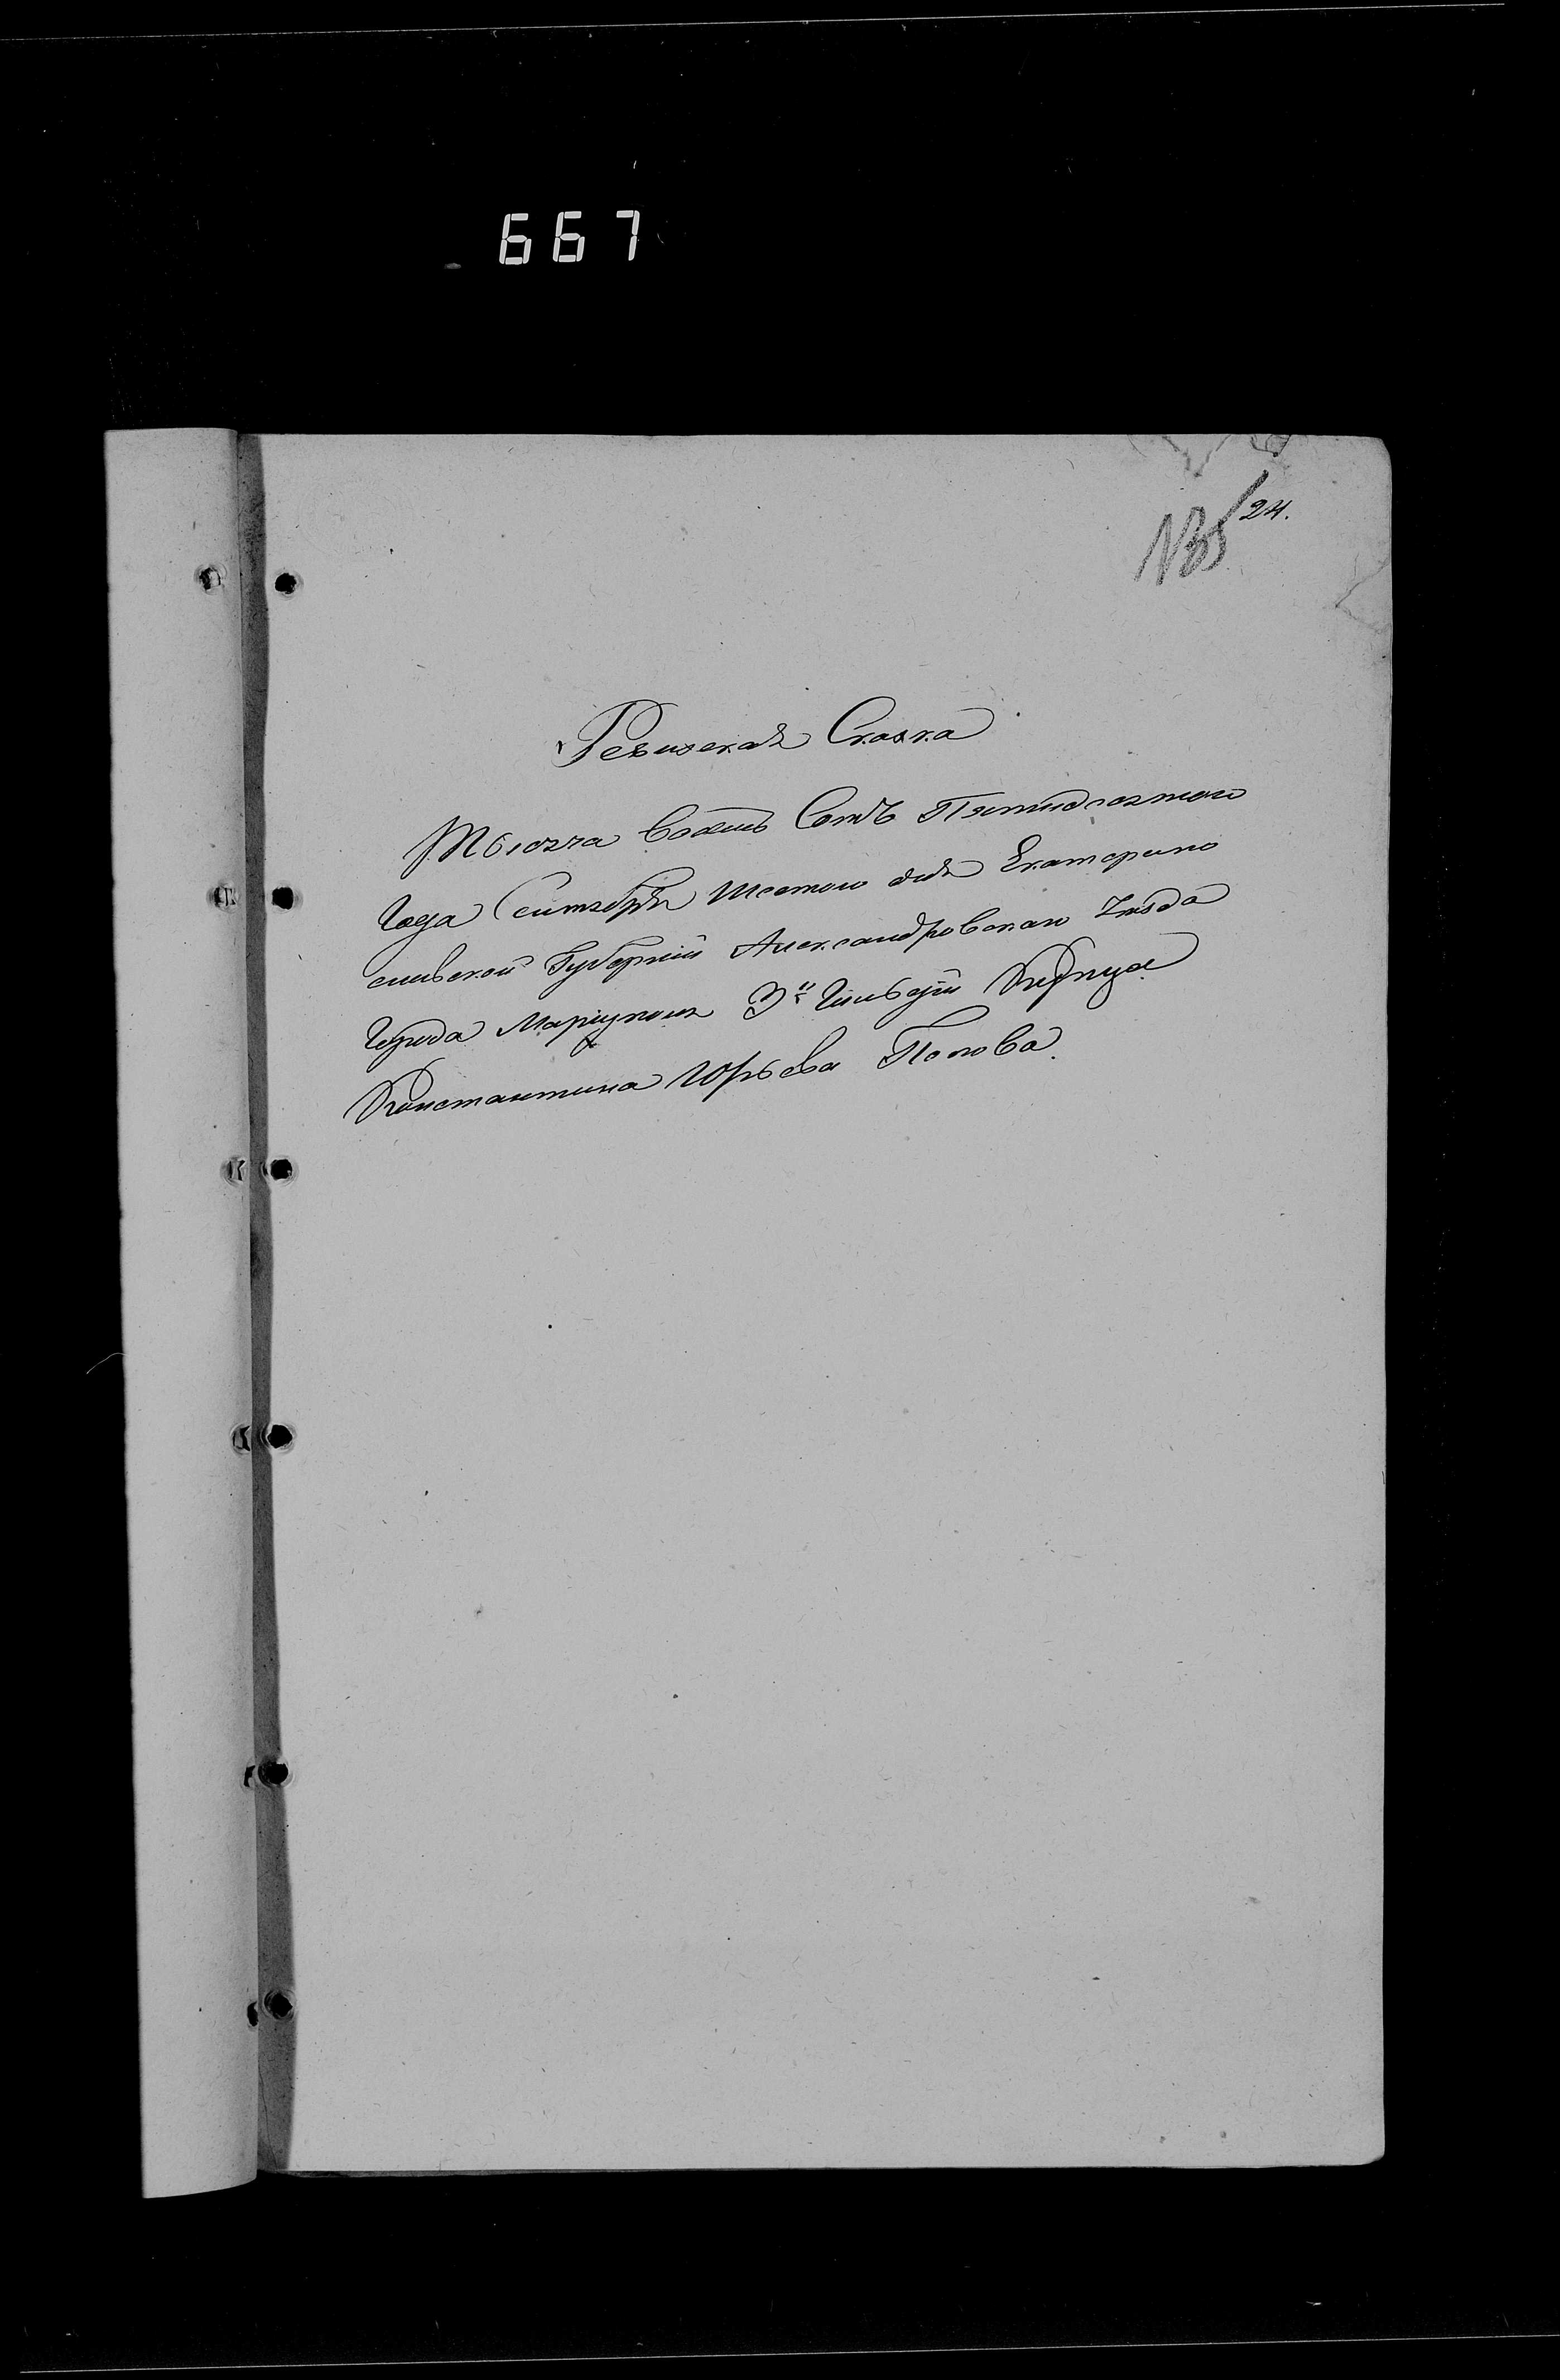 667
24.
Ревизская Сказка
Тысяча восемь Сотъ Пятидесятаго
Года Сентября Шестого дня Екатерино
славской Губерніи Александровскаго Уезда
Города Мариуполя 3й Гильдіи Купца
Константина Юрьева Попова.